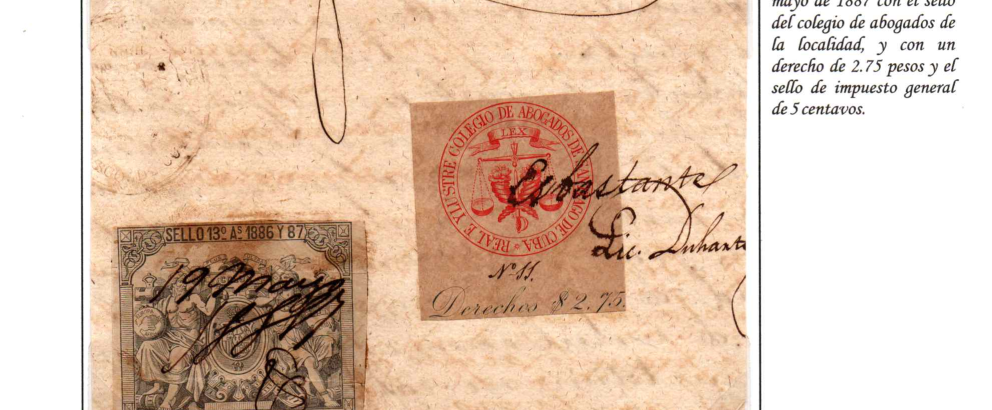 mayo de 1887 con el sello
del colegio de abogados de
la localidad, y con un
derecho de 2.75 pesos y el
sello de impuesto general
de 5 centavos.
REAL E YLUSTRE COLEGIO DE ABOGADOS DE SANTIAGO DE CUBA
LEX
Es bastante
Lic. Duhante
Nº 11.
Derechos $ 2,75
SELLO 13º AS 1886 Y 87
19 Mayo